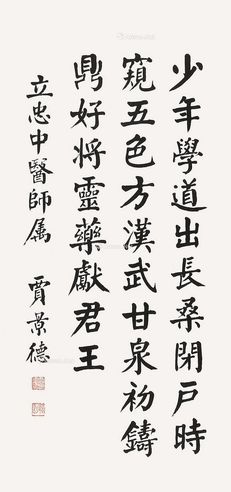 少年學道出長桑閉戶時
窺五色方漢武甘泉初鑄
鼎好將靈藥獻君王
立忠中醫師属
賈景德